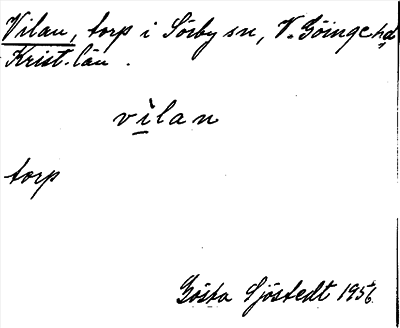 Vilan, torp i Sörby sn, V. Göinge hd
Krist. län.
vìlan
torp
Gösta Sjöstedt 1956.